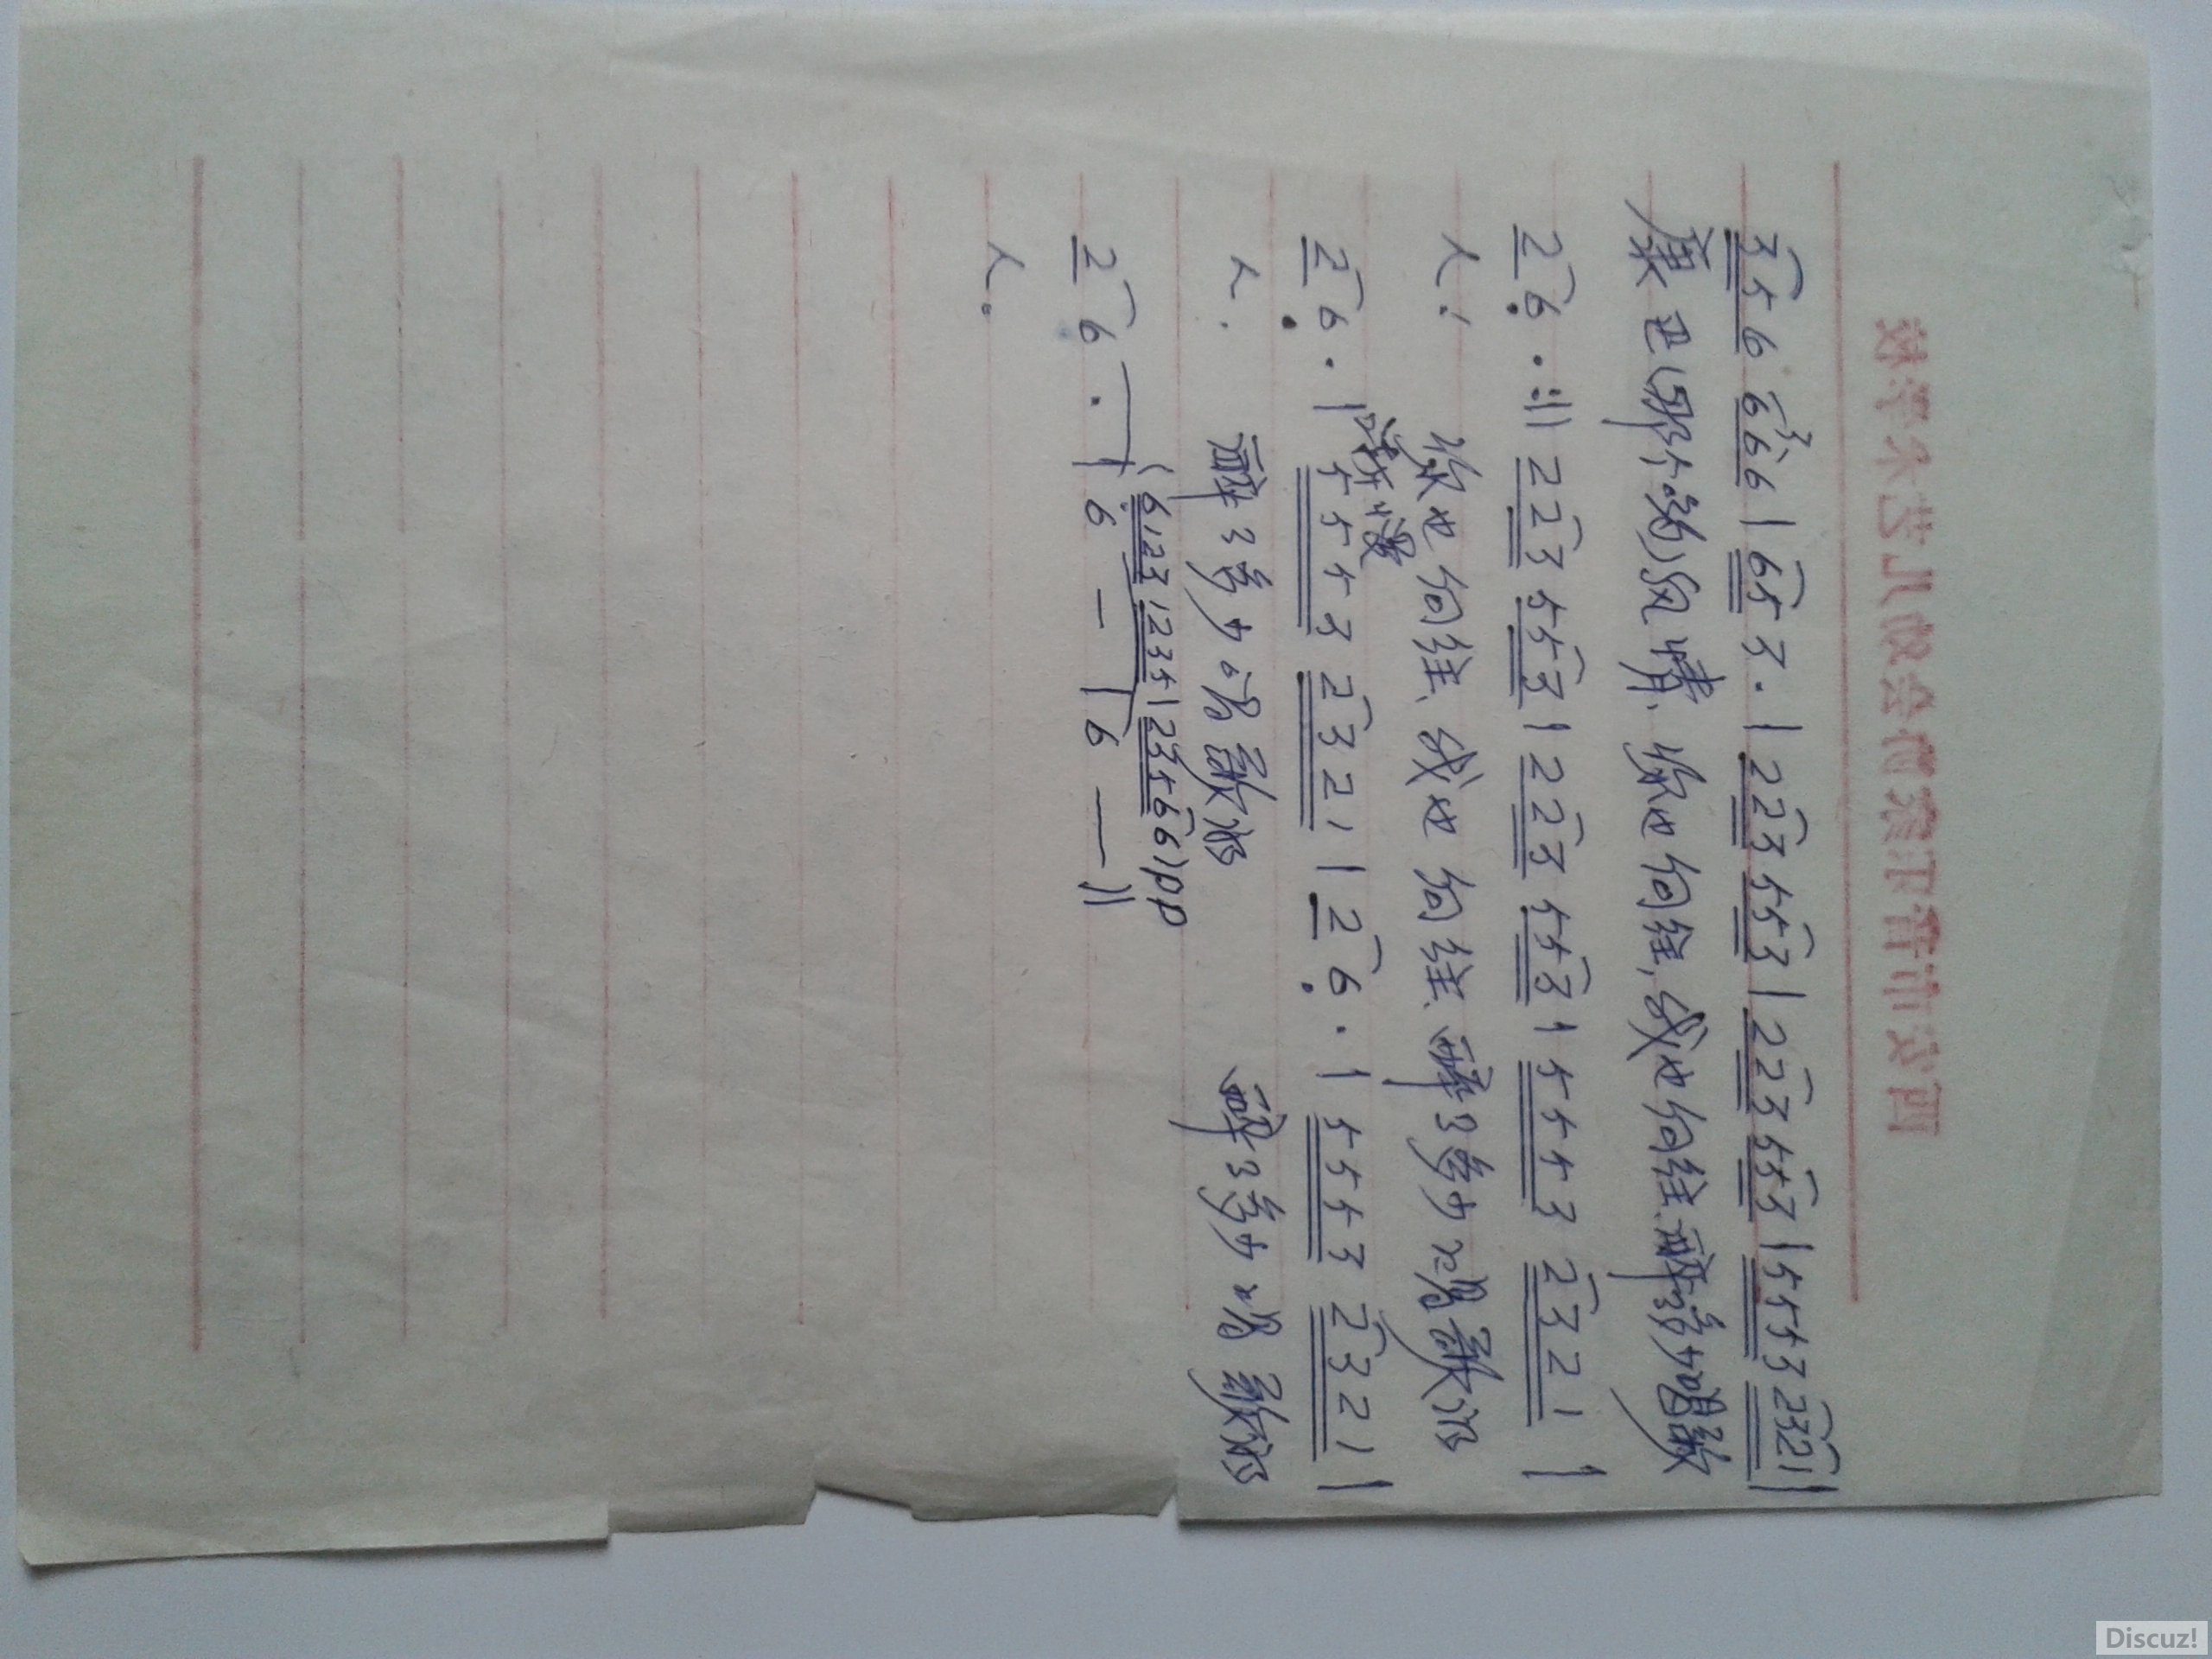 3 5 6 6 6 6 | 6 5 3 · | 2 2 3 5 5 3 | 2 2 3 5 5 3 | 5 5 5 3 2 3 2 1 |
康巴(那个)风情、你也向往,我也向往、醉了多少唱歌
2 6 · :|| 2 2 3 5 5 3 | 2 2 3 5 5 3 | 5 5 5 3 2 3 2 1 |
人! 你也向往、我也向往、醉了多少唱歌的
渐慢
2 6 · | 5 5 5 3 2 3 2 1 | 2 6 · | 5 5 5 3 2 3 2 1 |
人. 醉了多少唱歌的 醉了多少唱歌的
(6123 1235 | 2356 6) pp
2 6 · | 6 - | 6 — ||
人。
Discuz!